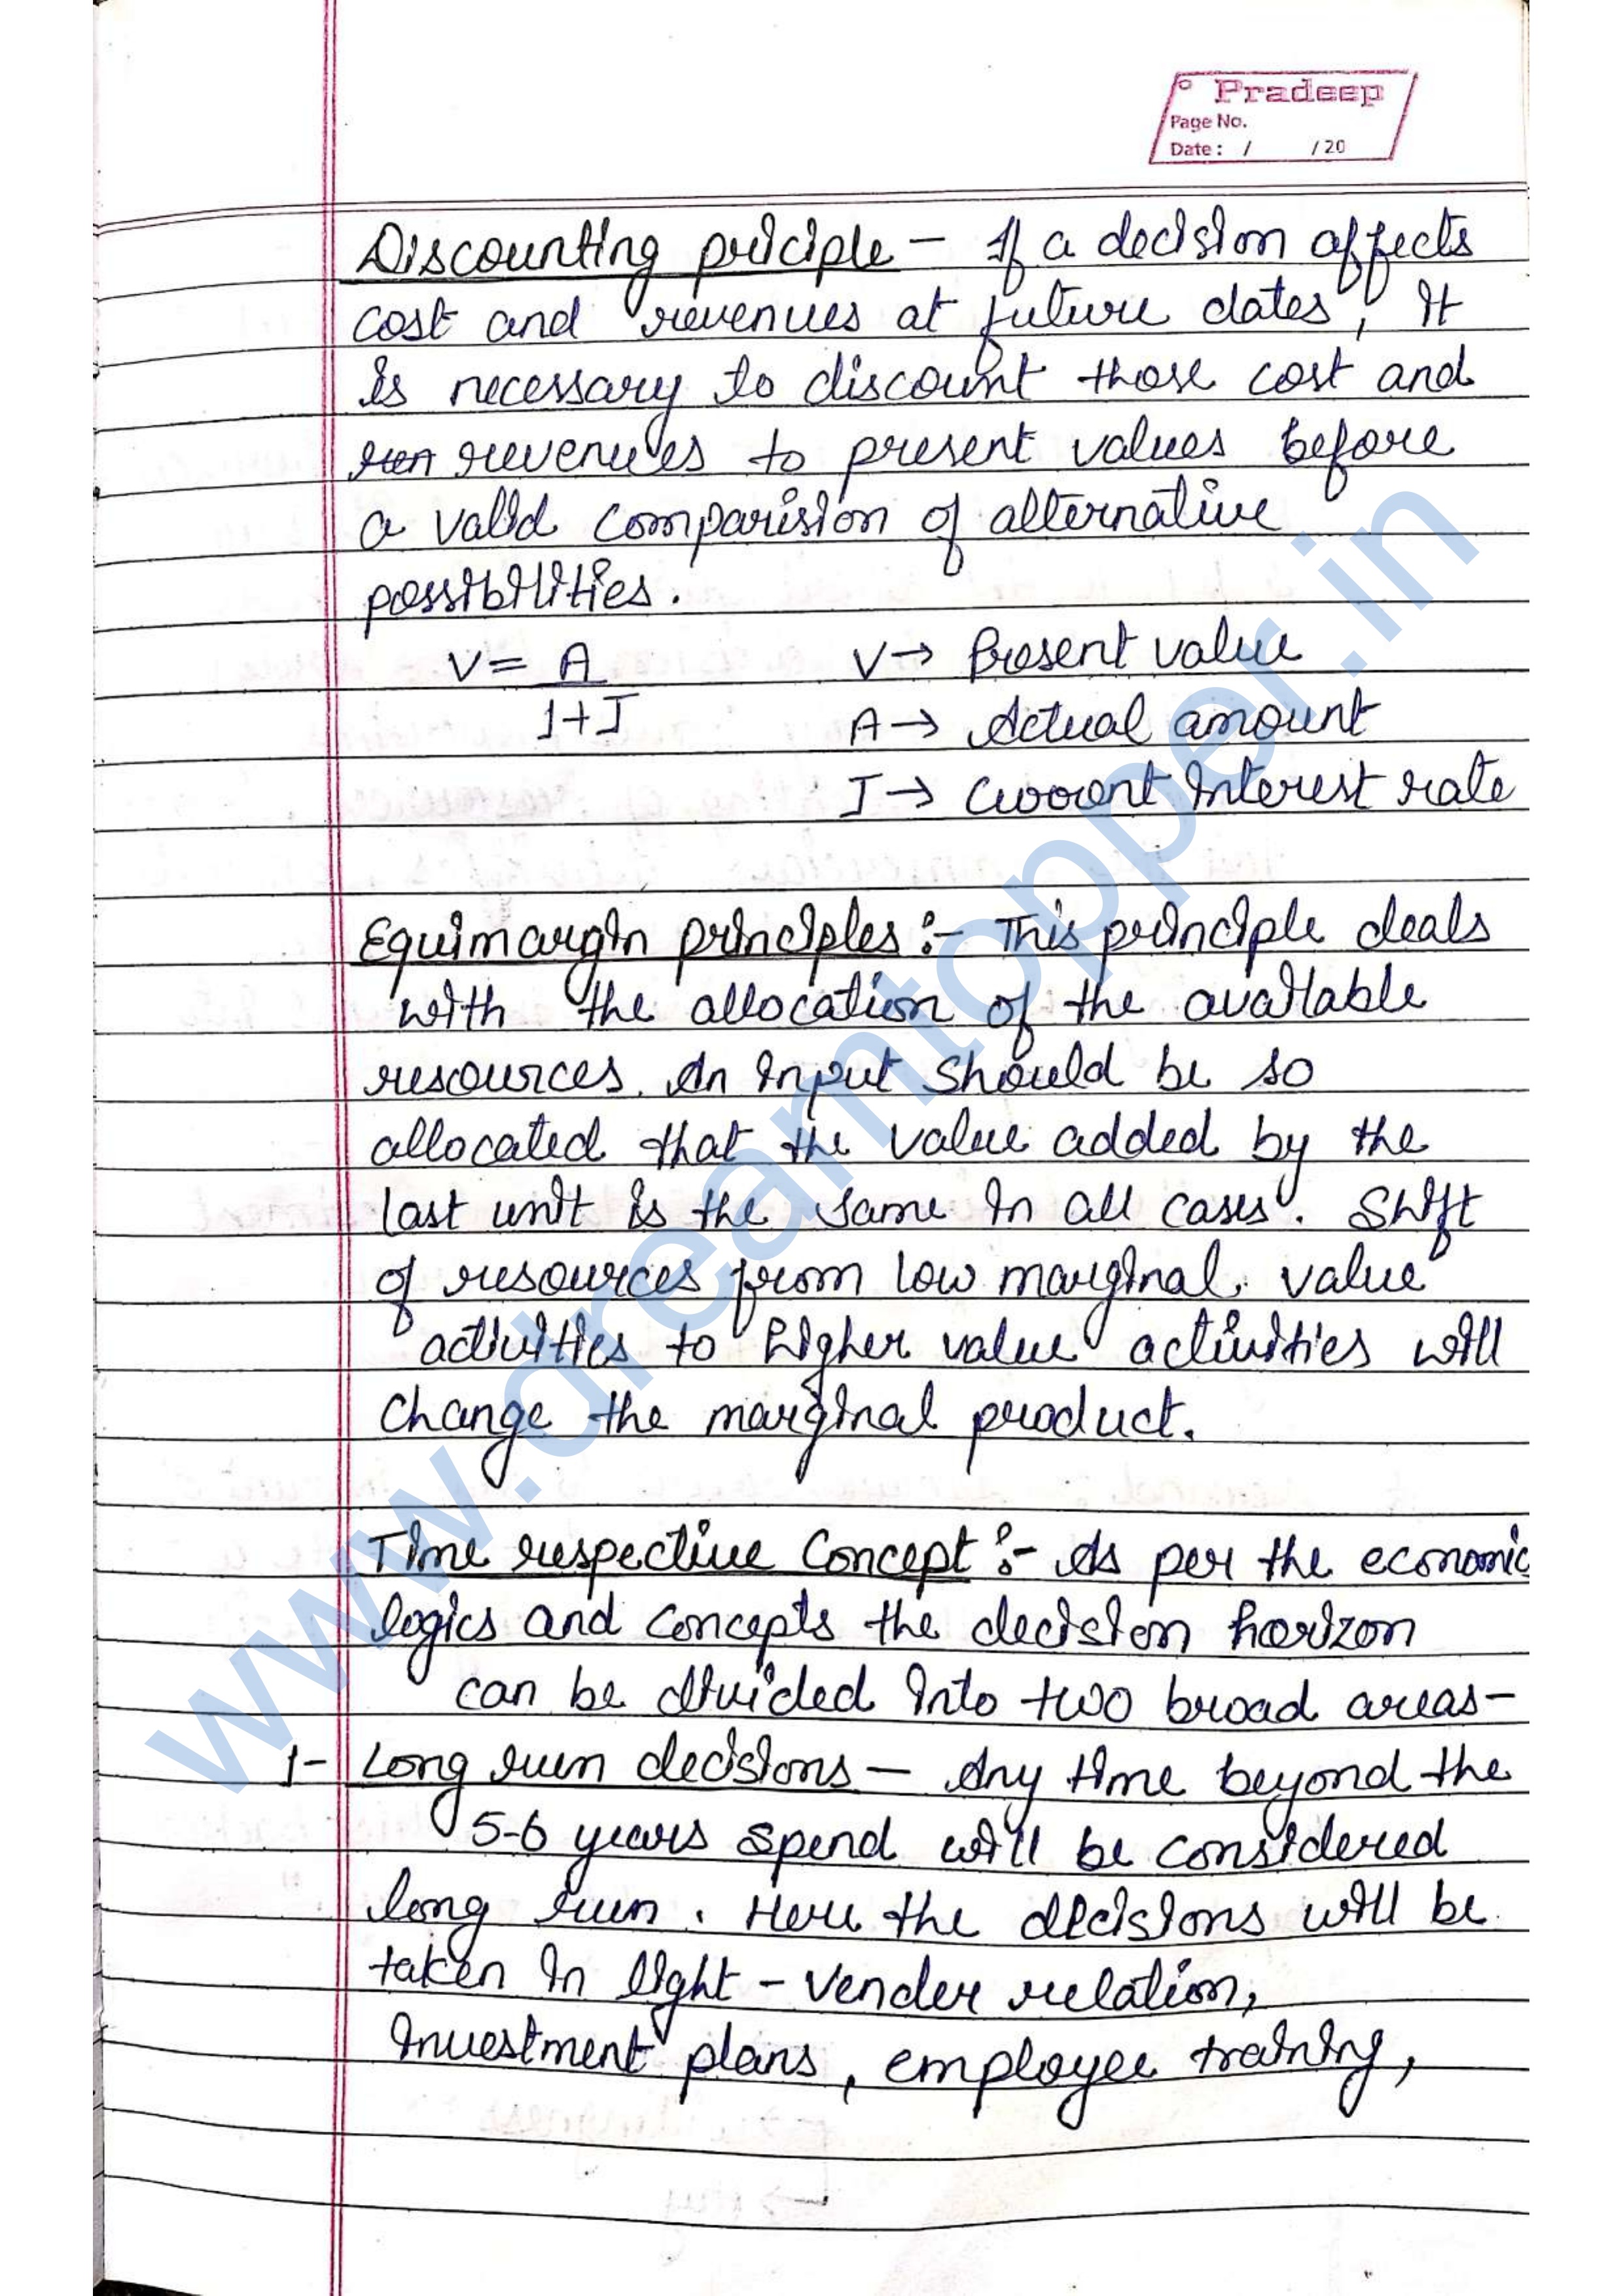 Pradeep
Page No.
Date : / / 20
Discounting priciple – If a decision affects
cost and revenues at future dates, It
is necessary to discount those cost and
revenues to present values before
a valid comparision of alternative
possibilities.
V = A / 1+I V → Present value
A → Actual amount
I → Current Interest rate
Equimargin principles :- This principle deals
with the allocation of the available
resources. An input should be so
allocated that the value added by the
last unit is the same in all cases. Shift
of resources from low marginal value
activities to higher value activities will
change the marginal product.
Time respective Concept :- As per the economic
logics and concepts the decision horizon
can be divided into two broad areas–
1- Long run decisions – Any time beyond the
5-6 years spend will be considered
long run. Here the decisions will be
taken in light – Vender relation,
investment plans, employee training,
www.dreamtopper.in